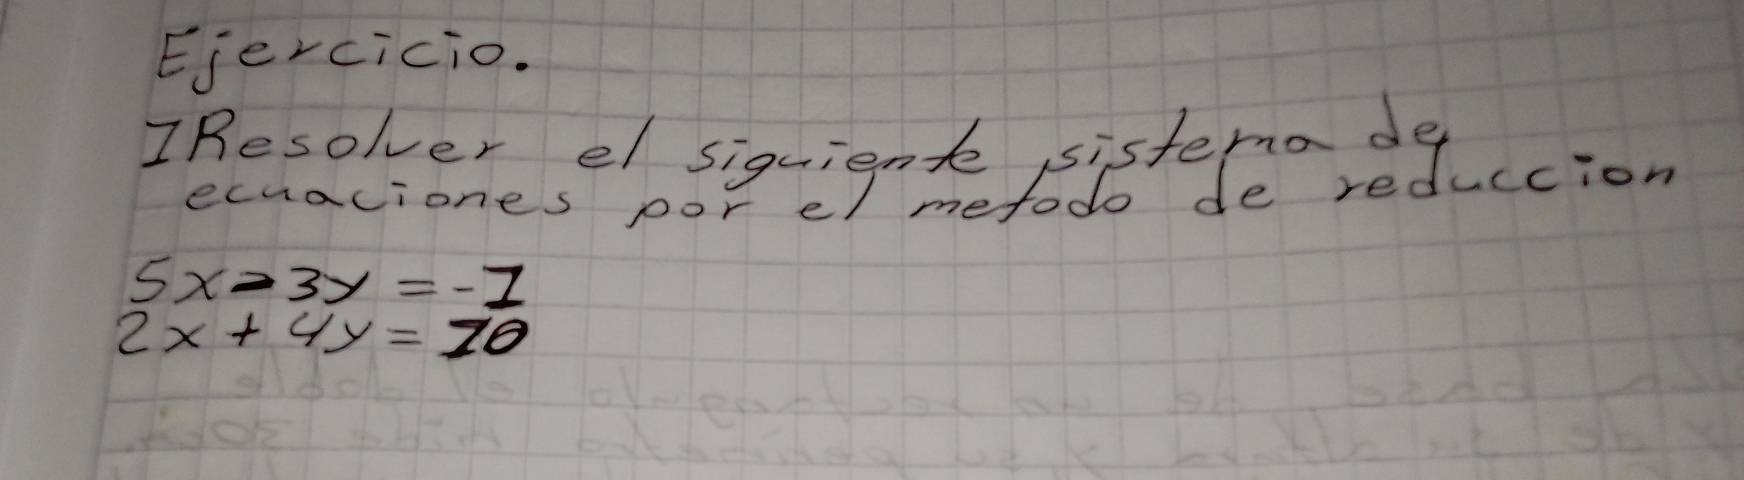 Ejercicio.
1 Resolver el siguiente sistema de
ecuaciones por el metodo de reduccion
5x-3y = -1
2x + 4y = 10